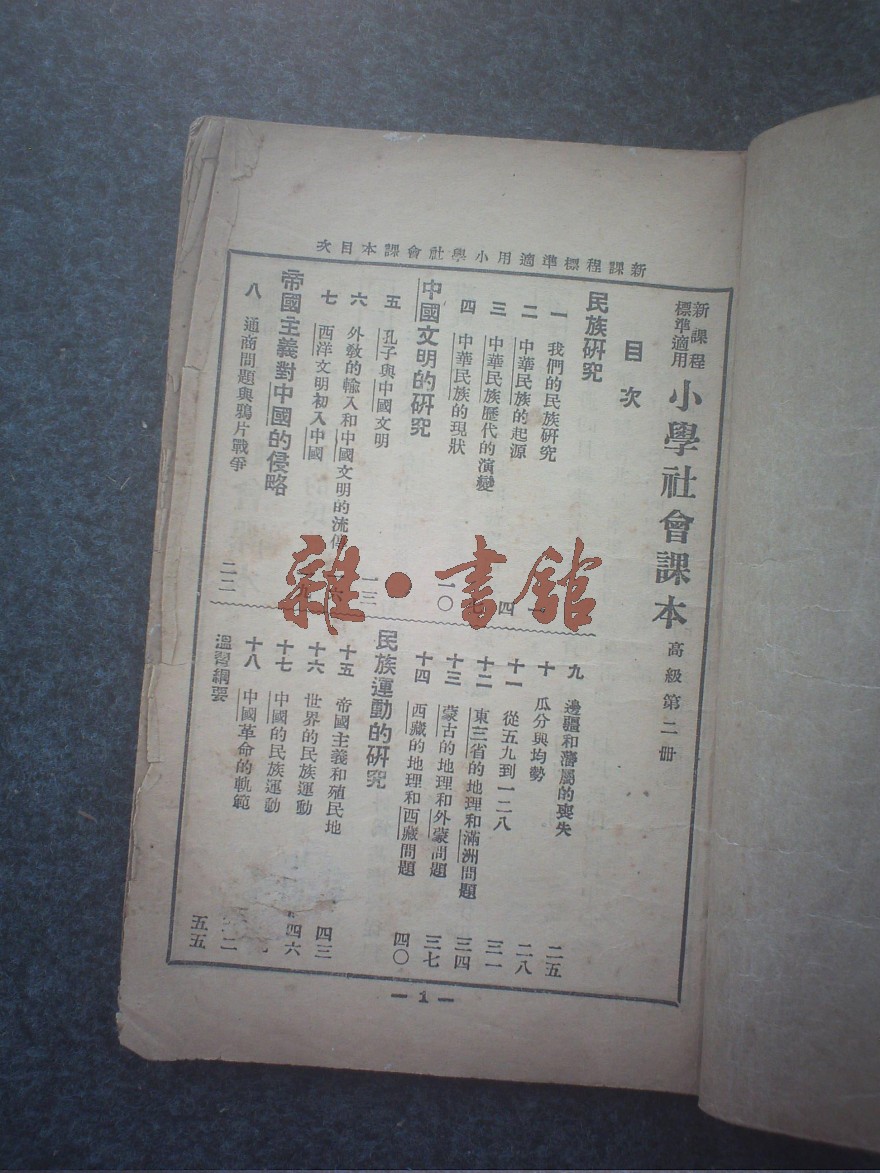 新課程標準適用小學社會課本目次
新課程
標準適用
小學社會課本 高級第二冊
目次
民族研究
一 我們的民族研究
二 中華民族的起源 四
三 中華民族歷代的演變
四 中華民族的現狀 一〇
中國文明的研究
五 孔子與中國文明 一三
六 外教的輸入和中國文明的流傳
七 西洋文明初入中國
帝國主義對中國的侵略
八 通商問題與鴉片戰爭 二二
九 邊疆和藩屬的喪失 二五
十 瓜分與均勢 二八
十一 從五九到一二八 三一
十二 東三省的地理和滿洲問題 三四
十三 蒙古的地理和外蒙問題 三七
十四 西藏的地理和西藏問題 四〇
民族運動的研究
十五 帝國主義和殖民地 四三
十六 世界的民族運動 四六
十七 中國的民族運動
十八 中國革命的軌範
溫習綱要 五五
— 1 —
雜·書館